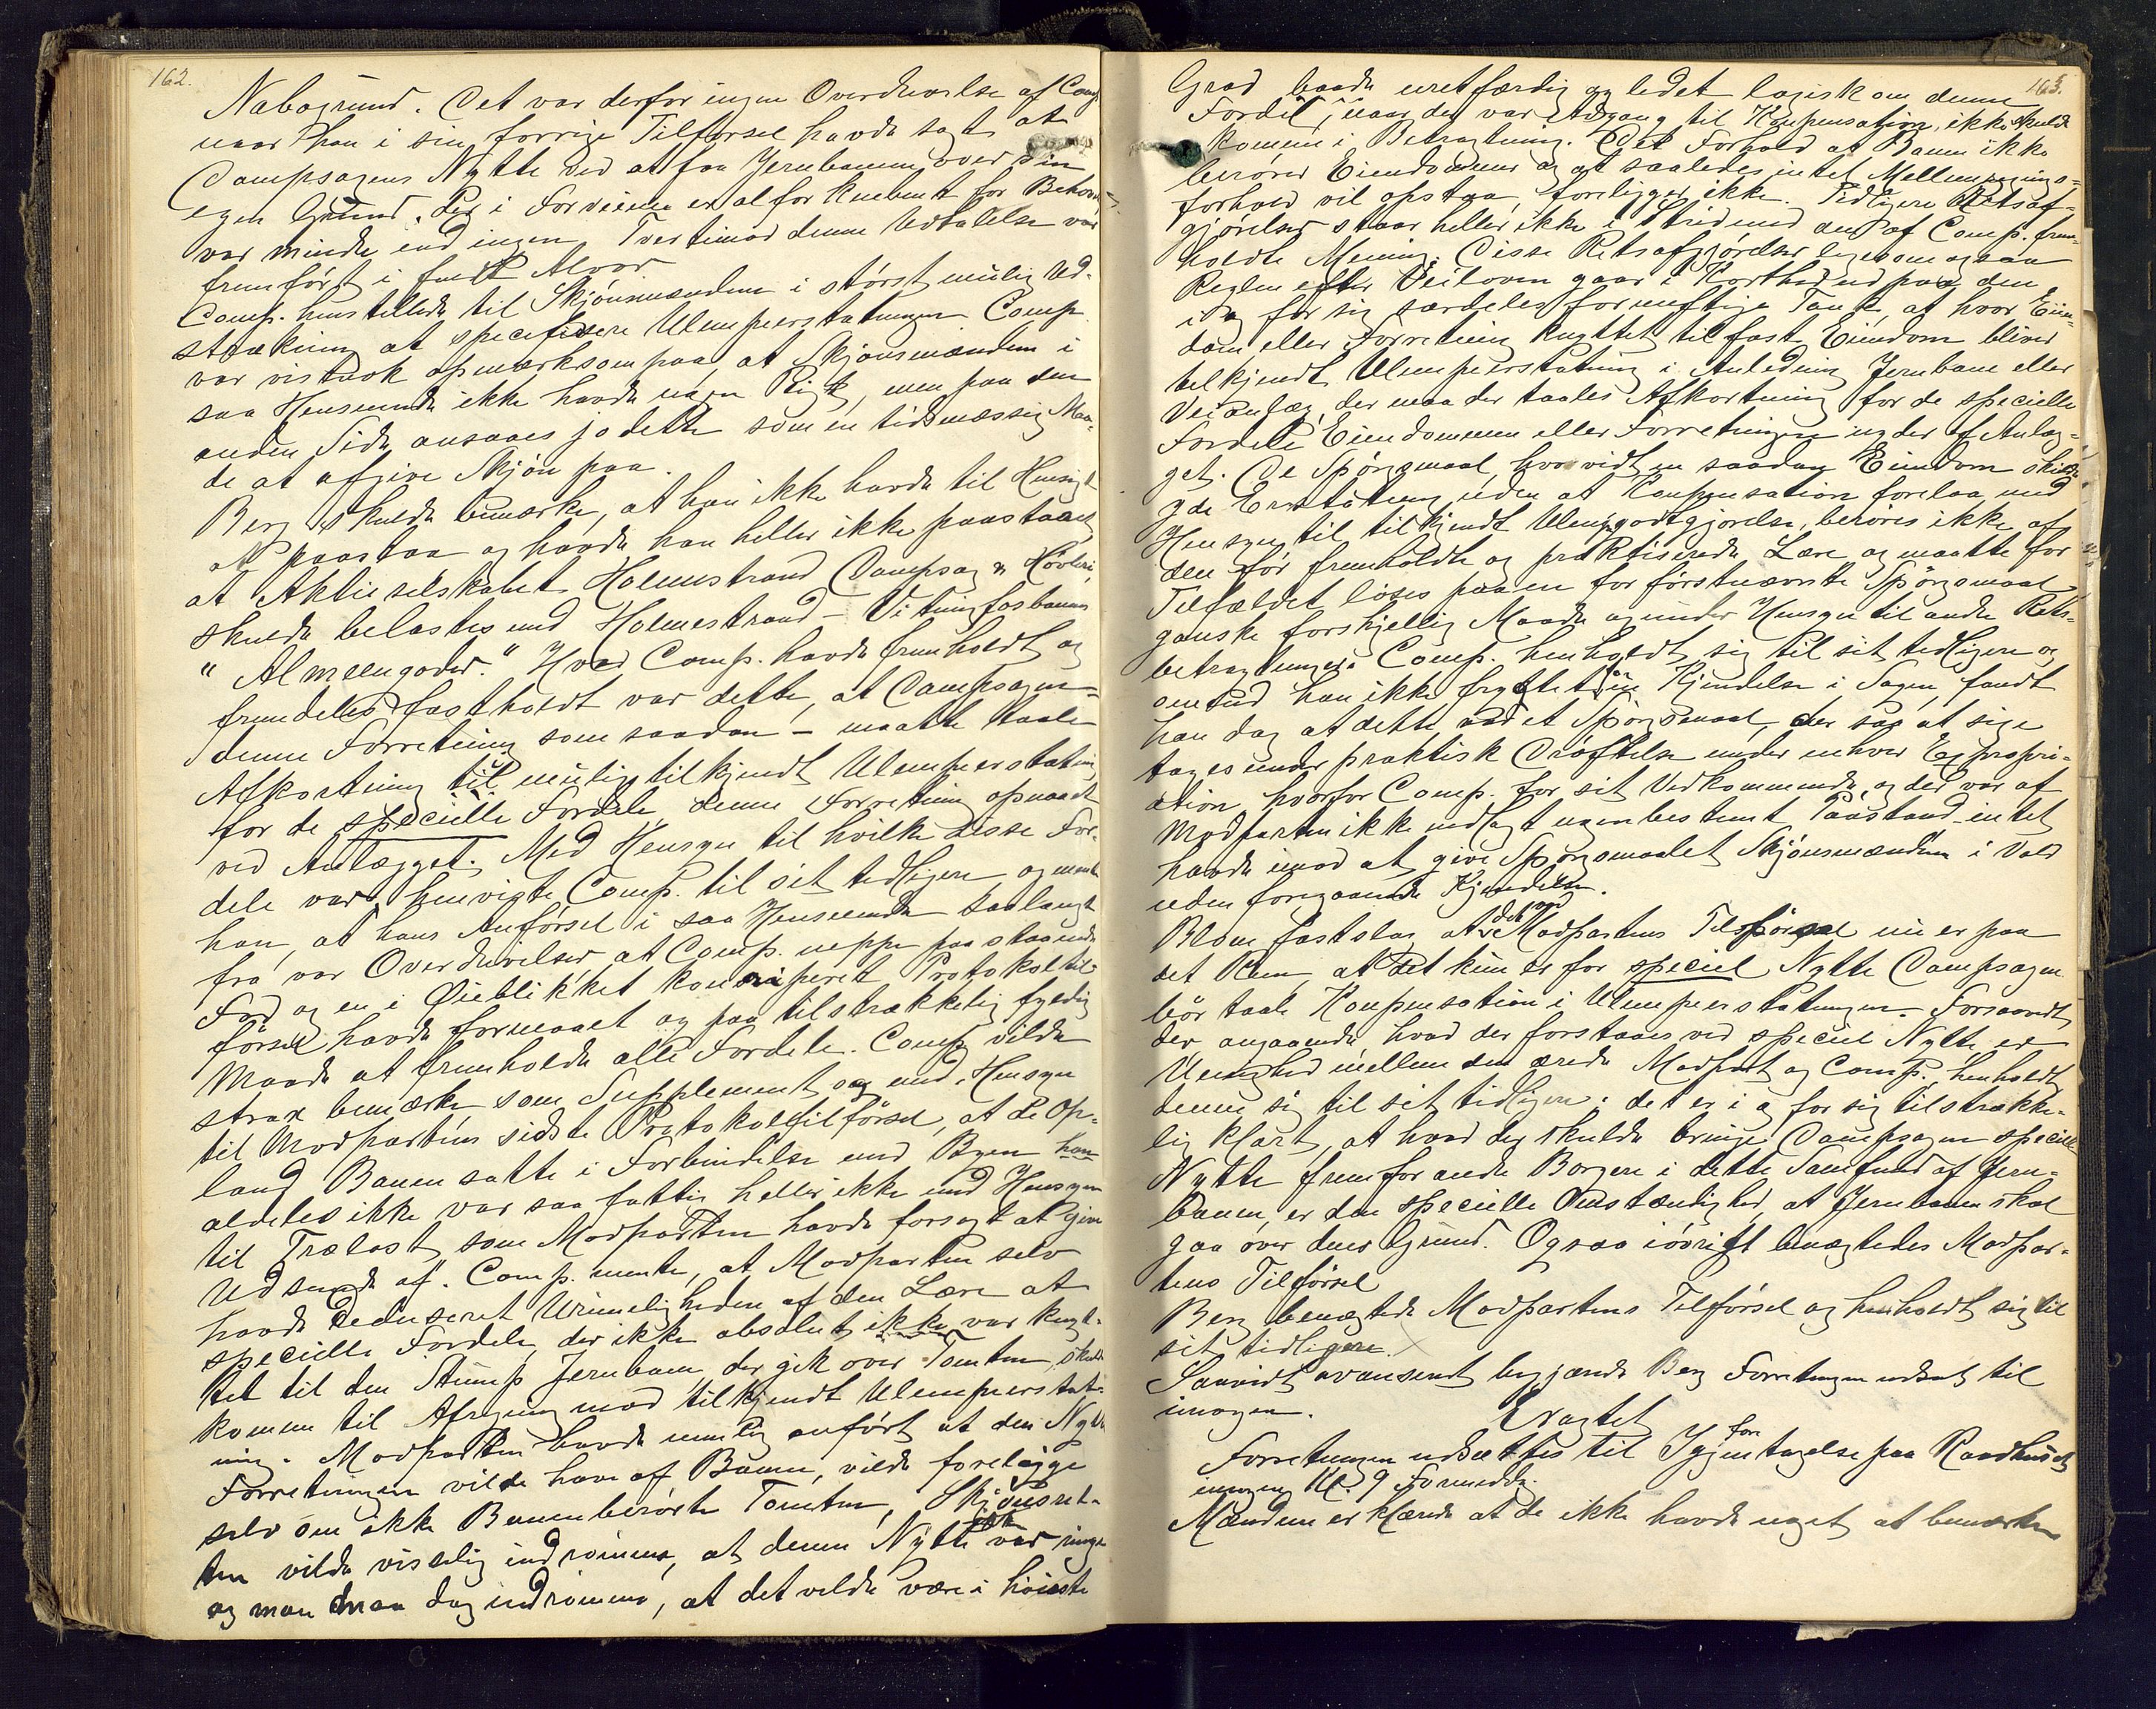 162.
Nabogrund. Det var derfor ingen Overdrivelse af Comp.
naar han i sin forrige Tilførsel havde sagt at
Dampsagens Nytte ved at faa Jernbanen over sin
egen Grund, der i Forveien er alfor knebent for Behovet,
var mindre end ingen. Tvertimod denne Udtalelse var
fremført i fuldt Alvor.
Comp. henstillede til Skjønsmændene i størst mulig Ud-
strækning at specificere Ulempeerstatningen. Comp.
var vistnok opmærksom paa, at Skjønsmændene i
saa Henseende ikke havde nogen Pligt, men paa den
anden Side ansaaes jo dette som en tidsmæssig Maa-
de at afgive Skjøn paa.
Berg skulde bemærke, at han ikke havde til Hensigt
at paastaa og havde han heller ikke paastaaet,
at Aktieselskabet Holmestrand Dampsag & Høvleri
skulde belastes med Holmestrand-Vittingfosbanens
"Almeengoder." Hvad Comp. havde fremholdt og
fremdeles fastholdt var dette, at Dampsagen -
denne Forretning som saadan - maatte taale
Afkortning til mulig tilkjendt Ulempeerstatning
for de specielle Fordele, denne Forretning opnaaet
ved Anlægget. Med Hensyn til hvilke disse For-
dele var, henviste Comp. til sit tidligere, og mente
han, at hans Anførsel i saa Henseende saalangt
fra var Overdrivelser at Comp. neppe paa staaende
Fod og en i Øieblikket konsiperet Protokoltil-
førsel havde formaaet og paa tilstrækkelig fyldig
Maade at fremholde alle Fordele. Comp. vilde
strax bemærke som Supplement og med Hensyn
til Modpartens sidste Protokoltilførsel, at de Op-
land Banen satte i Forbindelse med Byen han
aldeles ikke var saa fattig heller ikke med Hensyn
til Trælast, som Modparten havde forsøgt at give
Udseende af. Comp. mente, at Modparten selv
havde deduseret Urimeligheden af den Lære at
specielle Fordele, der ikke absolut ikke var knyt-
tet til den Stump Jernbane der gik over Tomten, skulde
komme til Afregning mod tilkjendt Ulempeerstat-
ning. Modparten havde nemlig anført at den Nytte
Forretningen vilde have af Banen, vilde foreligge
selv om ikke Banen berørte Tomten, Skjønsret-
ten vilde visselig indrømme, at denne Nytte ikke var ringe
og man maa dog indrømme, at det vilde være i høieste
163.
Grad baade uretfærdig og ledet logisk om denne
Fordel, naar der var Adgang til Kompensation, ikke skulde
komme i Betragtning. Det Forhold at Banen ikke
berører Eiendommen og at saaledes intet Mellemregnings-
forhold vil opstaa, foreligger ikke. Tidligere Retsaf-
gjørelser staar heller ikke i Strid med den af Comp. frem-
holdte Mening. Disse Retsafgjørelser ligesom ogsaa
Reglen efter Veiloven gaar i Korthed ud paa den
i og for sig særdeles fornuftige Tanke at hvor Eien-
dom eller Forretning knyttet til fast Eiendom bliver
tilkjendt Ulempeerstatning i Anledning Jernbane eller
Veianlæg, der maa der taales Afkortning for de specielle
Fordele Eiendommen eller Forretningen nyder af Anlæg-
get. De Spørgsmaal, hvorvidt en saadan Eiendom skulde
yde Erstatning uden at Kompensation forelaa med
Hensyn til tilkjendt Ulempegodtgjørelse, berøres ikke af
den før fremholdte og praktiserede Lære og maatte for
Tilfældet løses paa en for førstnævnte Spørgsmaal
ganske forskjellig Maade og under Hensyn til andre Rets-
betragtninger. Comp. henholdt sig til sit tidligere og
omend han ikke frygtet en Kjendelse i Sagen, fandt
han dog at dette var et Spørgsmaal, der saa at sige
toges under praktisk Drøftelse under enhver Expropri-
ation, hvorfor Comp. for sit Vedkommende, og der var af
Modparten ikke nedlagt nogen bestemt Paastand - intet
havde imod at give Spørgsmaalet Skjønsmændene i Vold
uden foregaaende Kjendelse.
Blom fastslog at det ved Modpartens Tilførsel nu er paa
det Rene, at det kun er for speciel Nytte Dampsagen
bør taale Kompensation i Ulempeerstatningen. Forsaavidt
der angaaende hvad der forstaaes ved speciel Nytte er
Uenighed mellem den ærede Modpart og Comp., henholdt
denne sig til sit tidligere; det er i og for sig tilstrække-
lig klart, at hvad der skulde bringe Dampsagen speciel
Nytte fremfor andre Borgere i dette Samfund af Jern-
banen, er den specielle Omstændighed, at Jernbanen skal
gaa over dens Grund. Ogsaa iøvrigt benægtedes Modpar-
tens Tilførsel
Berg benægtede Modpartens Tilførsel og henholdt sig til
sit tidligere.
Saavidt avanseret begjærede Berg Forretningen udsat til
imorgen.
Eragtet
Forretningen udsættes til Igjenforetagelse paa Raadhuset
imorgen Kl. 9 Formiddag.
Mændene erklærede at de ikke havde noget at bemærke